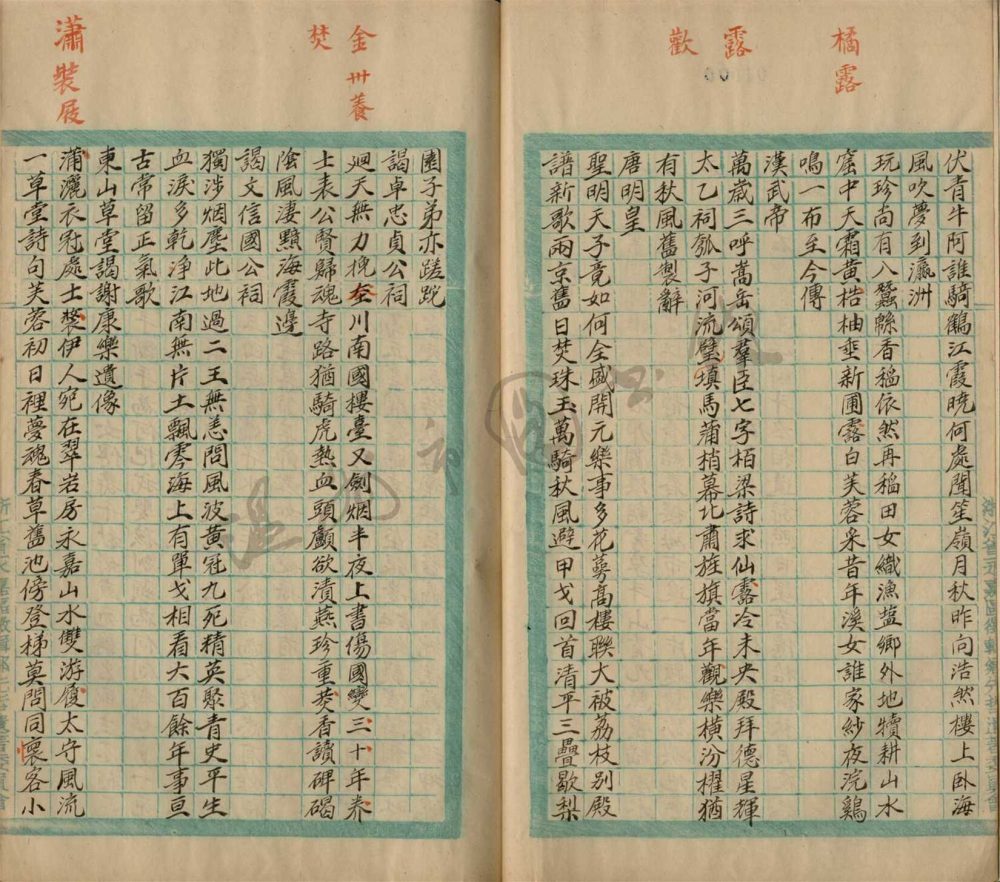 橘露
露
歡
伏青牛阿誰騎鶴江霞曉何處聞笙嶺月秋昨向浩然樓上臥海
風吹夢到瀛洲
玩珍尚有八蠶緜香稲依然再稲田女織漁盐鄉外地犢耕山水
窟中天霜黄桔柚垂新圃露白芙蓉采昔年溪女誰家紗夜浣鷄
鳴一布至今傳
漢武帝
萬歲三呼嵩岳頌羣臣七字栢梁詩求仙露冷未央殿拜德星輝
太乙祠瓠子河流璧填馬蒲梢幕北肅旌旗當年觀樂横汾櫂猶
有秋風舊製辭
唐明皇
聖明天子竟如何全盛開元樂事多花萼高樓聯大被荔枝别殿
譜新歌兩京舊日焚珠玉萬騎秋風避甲戈回首清平三疊歇梨
金卅養
焚
瀟裝屐
園子弟亦蹉跎
謁卓忠貞公祠
廻天無力挽 川南國樓臺又劍烟半夜上書傷國變三十年养
士表公賢歸魂寺路猶騎虎熱血頭顱欲漬燕珍重 香讀碑碣
陰風淒黯海霞邊
謁文信國公祠
獨涉烟塵此地過二王無恙問風波黄冠九死精英聚青史平生
血淚多乾净江南無片土飄零海上有單戈相看大百餘年事亘
古常留正氣歌
東山草堂謁謝康樂遺像
蒲灑衣冠處士裝伊人宛在翠岩房永嘉山水雙游履太守風流
一草堂詩句芙蓉初日裡夢魂春草舊池傍登梯莫問同懷客小